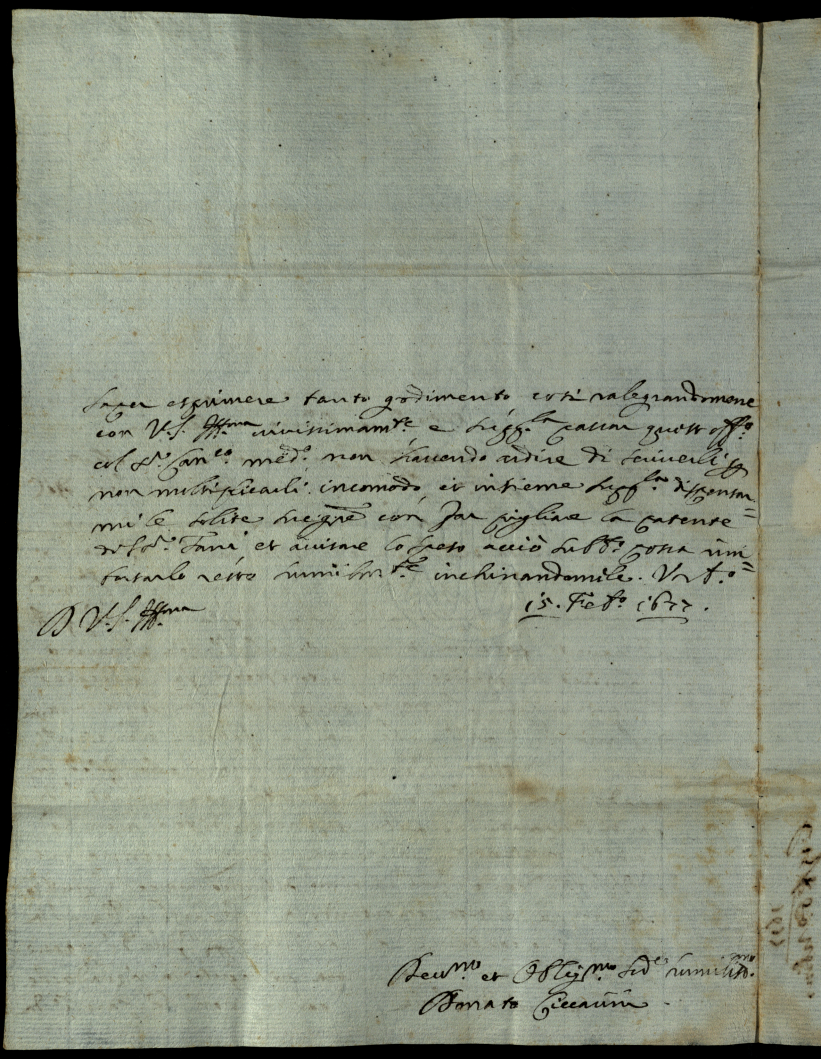 saper esprimere tanto godimento così ralegrandomene
con V.S. Ill.ma vivissimam.te e supp.la passar questo off.o
col S.r Can.co med.o non havendo ardire di scriverli p
non multiplicarli incomodo, et insieme supp.la dispensar=
mi le solite con far pigliare la patente
del S.r et avisare lo speso acciò sub.o possa rim=
borsarlo resto humilm.te inchinandomile.
15. Feb.o 1677.
D V.S. Ill.ma
Dev.mo et Oblig.mo humiliss.o
Donato